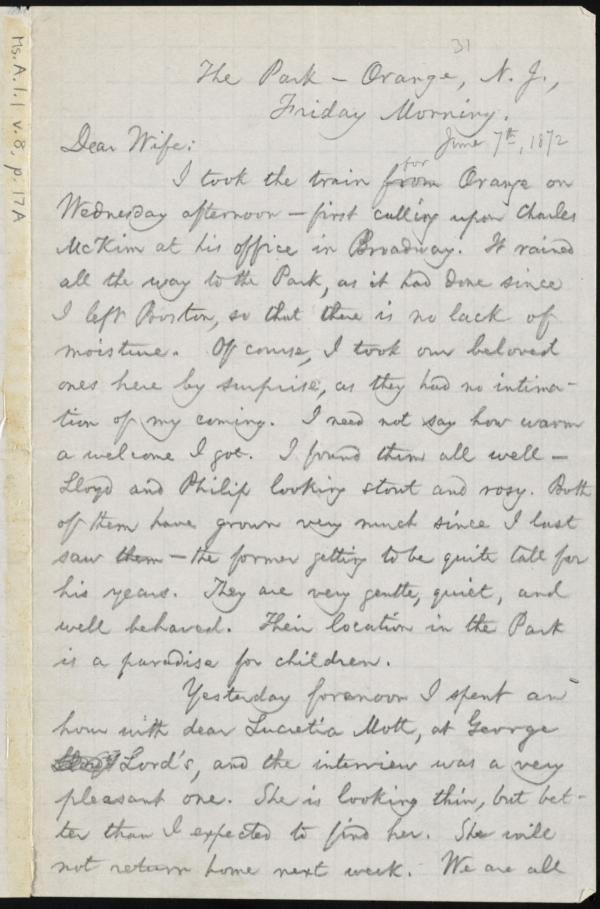 31
The Park – Orange, N. J.,
Friday Morning.
June 7th, 1872
Dear Wife:
I took the train from for Orange on
Wednesday afternoon – first calling upon Charles
McKim at his office in Broadway. It rained
all the way to the Park, as it had done since
I left Boston, so that there is no lack of
moisture. Of course, I took our beloved
ones here by surprise, as they had no intima-
tion of my coming. I need not say how warm
a welcome I got. I found them all well –
Lloyd and Philip looking stout and rosy. Both
of them have grown very much since I last
saw them – the former getting to be quite tall for
his years. They are very gentle, quiet, and
well behaved. Their location in the Park
is a paradise for children.
Yesterday forenoon I spent an
hour with dear Lucretia Mott, at George
Lord's, and the interview was a very
pleasant one. She is looking thin, but bet-
ter than I expected to find her. She will
not return home next week. We are all
Ms. A. 1. 1 v. 8, p. 17A